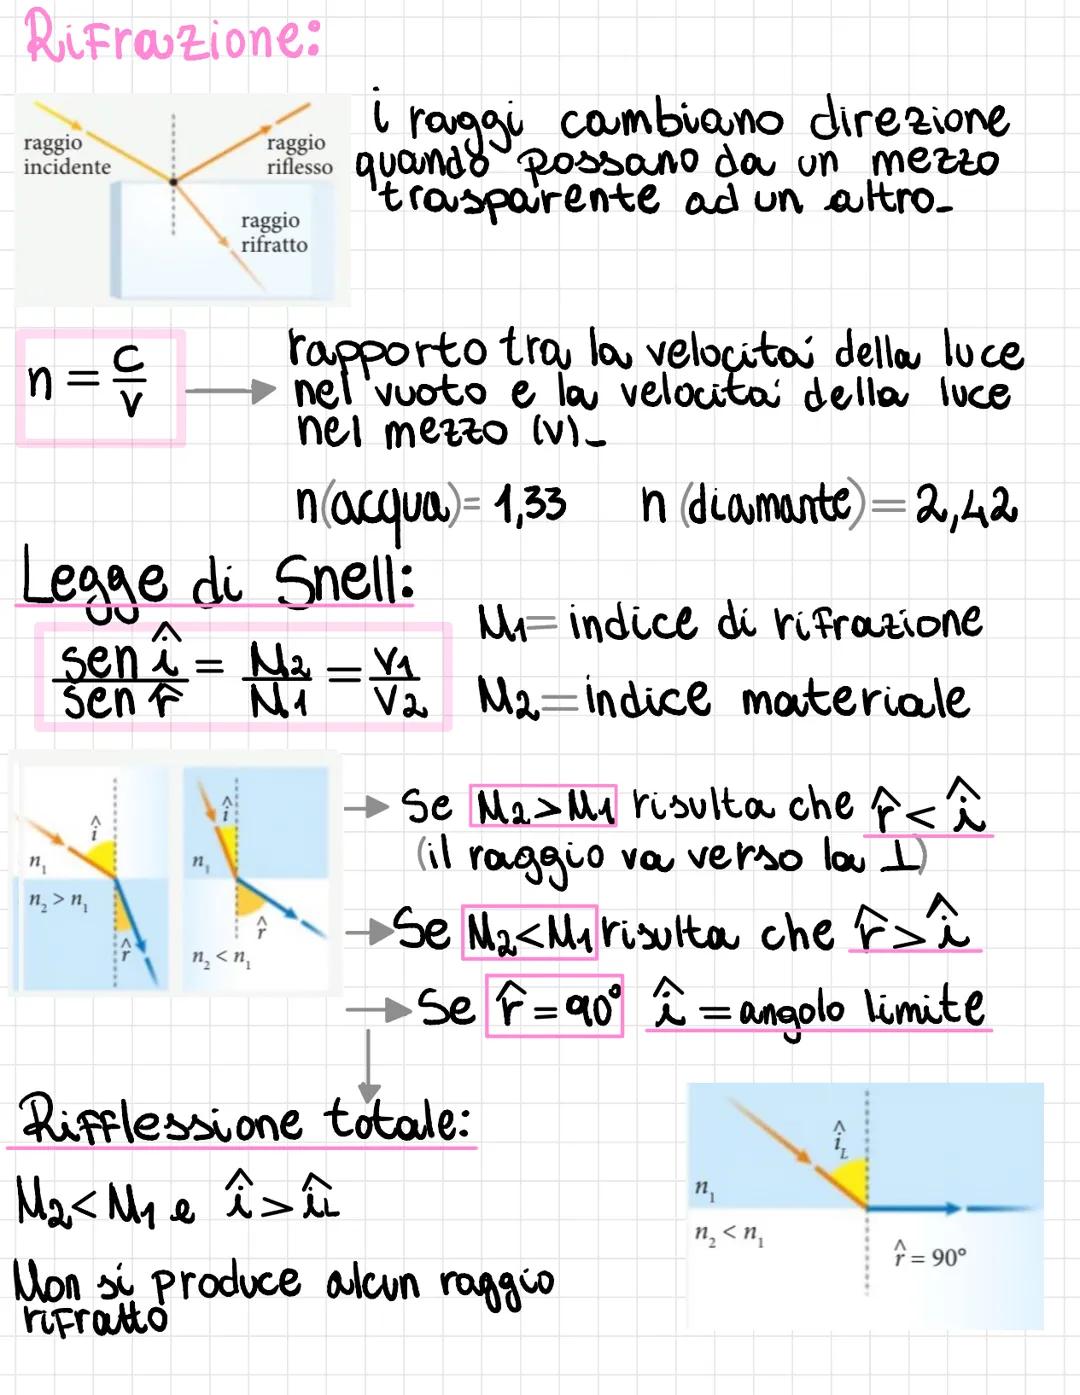 Rifrazione:
raggio incidente
raggio riflesso
raggio rifratto
i raggi cambiano direzione
quando possano da un mezzo
trasparente ad un altro_
n = c/v → rapporto tra la velocità della luce
nel vuoto e la velocità della luce
nel mezzo (v)_
n(acqua)= 1,33 n (diamante)= 2,42
Legge di Snell:
sen î / sen r̂ = N2/N1 = V1/V2
N1= indice di rifrazione
N2= indice materiale
î
n₁
n₂ > n₁
r̂
î
n₁
n₂ < n₁
r̂
→ Se N2>N1 risulta che r̂<î
(il raggio va verso la ⊥)
→ Se N2<N1 risulta che r̂>î
→ Se r̂=90° î = angolo limite
Rifflessione totale:
N2<N1 e î>îL
Non si produce alcun raggio
rifratto
î_L
n₁
n₂ < n₁
r̂ = 90°